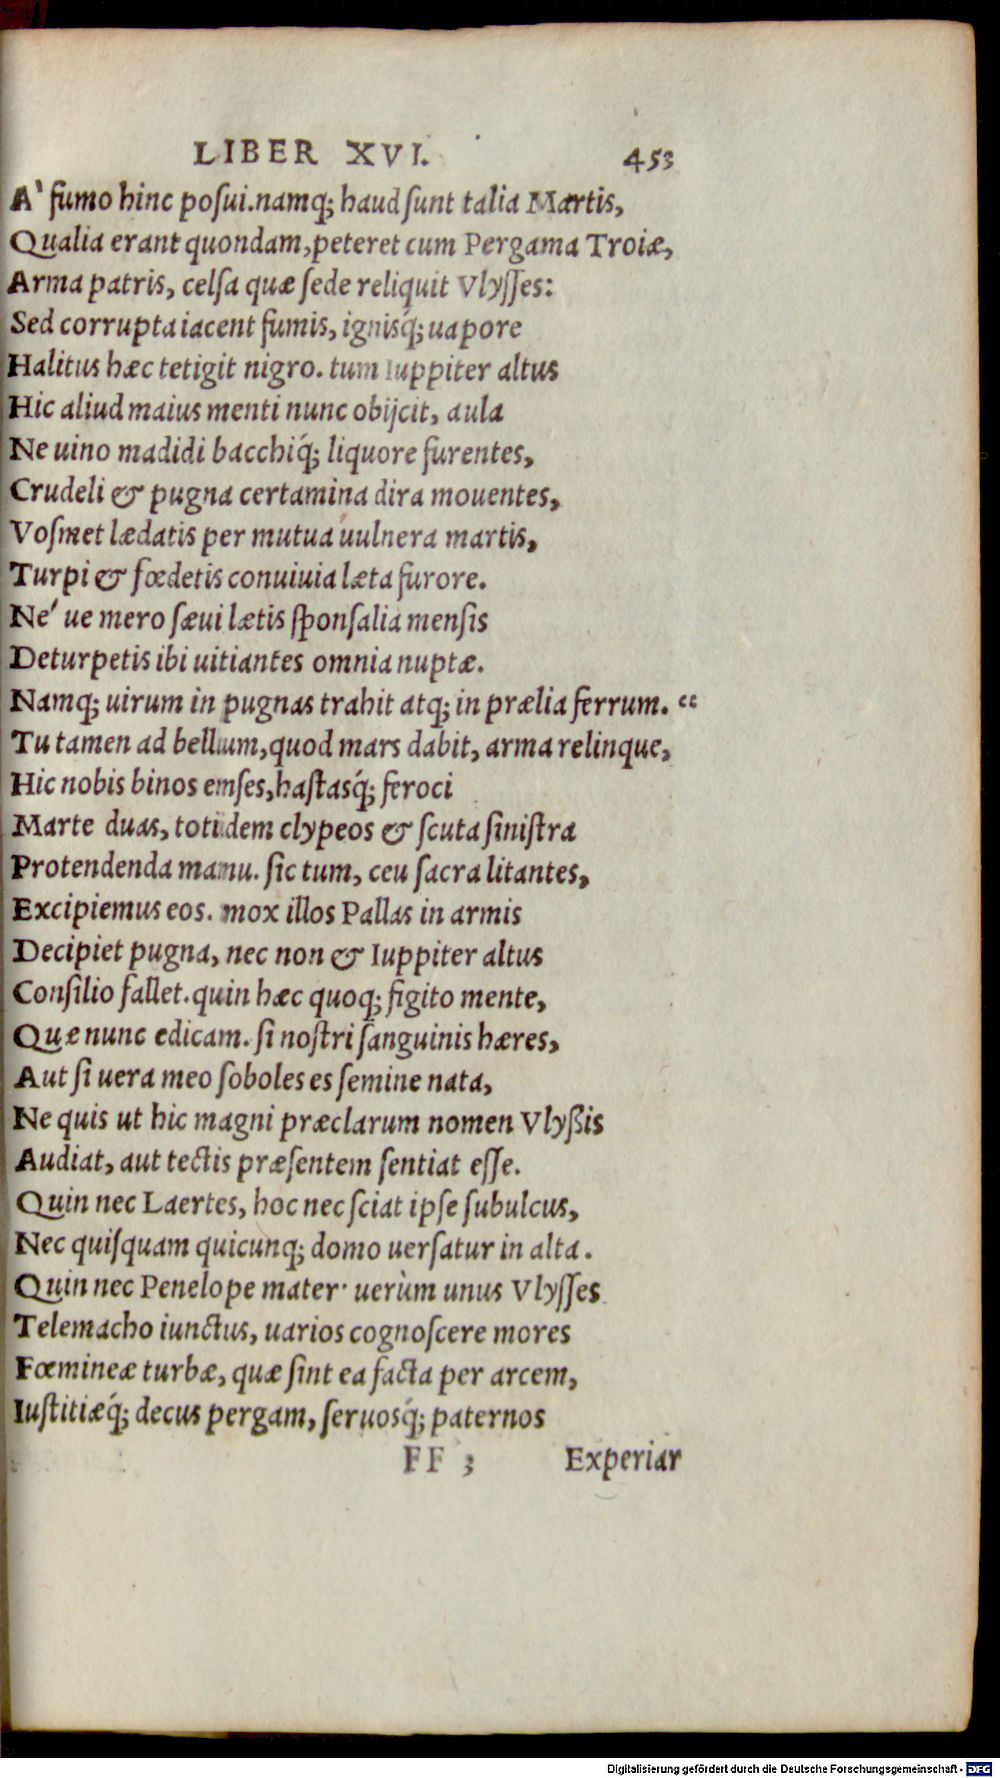 LIBER XVI. 453
A' fumo hinc posui.namq; haud sunt talia Martis,
Qualia erant quondam,peteret cum Pergama Troiæ,
Arma patris, celsa quæ sede reliquit Vlysses:
Sed corrupta iacent fumis, ignisq́; uapore
Halitus hæc tetigit nigro. tum Iuppiter altus
Hic aliud maius menti nunc obijcit, aula
Ne uino madidi bacchiq́; liquore furentes,
Crudeli & pugna certamina dira mouentes,
Vosmet lædatis per mutua uulnera martis,
Turpi & fœdetis conuiuia læta furore.
Ne' ue mero sæui lætis sponsalia mensis
Deturpetis ibi uitiantes omnia nuptæ.
Namq; uirum in pugnas trahit atq; in prælia ferrum. “
Tu tamen ad bellum,quod mars dabit, arma relinque,
Hic nobis binos enses,hastasq́; feroci
Marte duas, totidem clypeos & scuta sinistra
Protendenda manu. sic tum, ceu sacra litantes,
Excipiemus eos. mox illos Pallas in armis
Decipiet pugna, nec non & Iuppiter altus
Consilio fallet.quin hæc quoq; figito mente,
Quæ nunc edicam. si nostri sanguinis hæres,
Aut si uera meo soboles es semine nata,
Ne quis ut hic magni præclarum nomen Vlyßis
Audiat, aut tectis præsentem sentiat esse.
Quin nec Laertes, hoc nec sciat ipse subulcus,
Nec quisquam quicunq; domo uersatur in alta.
Quin nec Penelope mater· uerùm unus Vlysses
Telemacho iunctus, uarios cognoscere mores
Fœmineæ turbæ, quæ sint ea facta per arcem,
Iustitiæq́; decus pergam, seruosq́; paternos
FF 3 Experiar
Digitalisierung gefördert durch die Deutsche Forschungsgemeinschaft - DFG